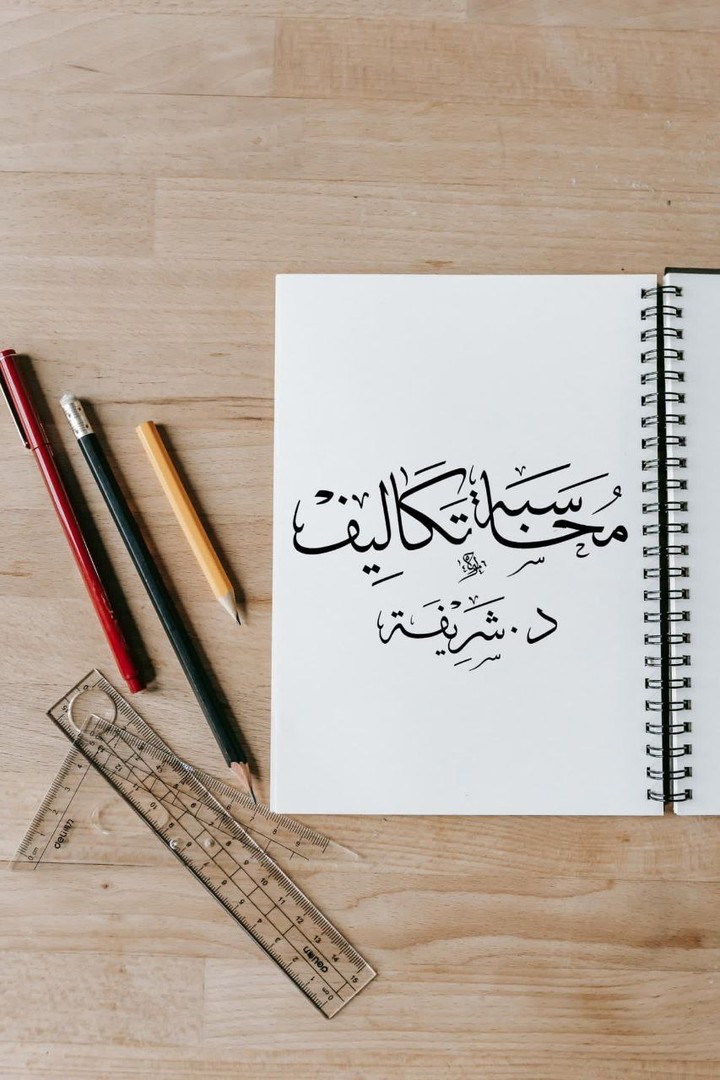 مُحَاسَبَة تَكَالِيفْ
د. شَرِيفَة
deli